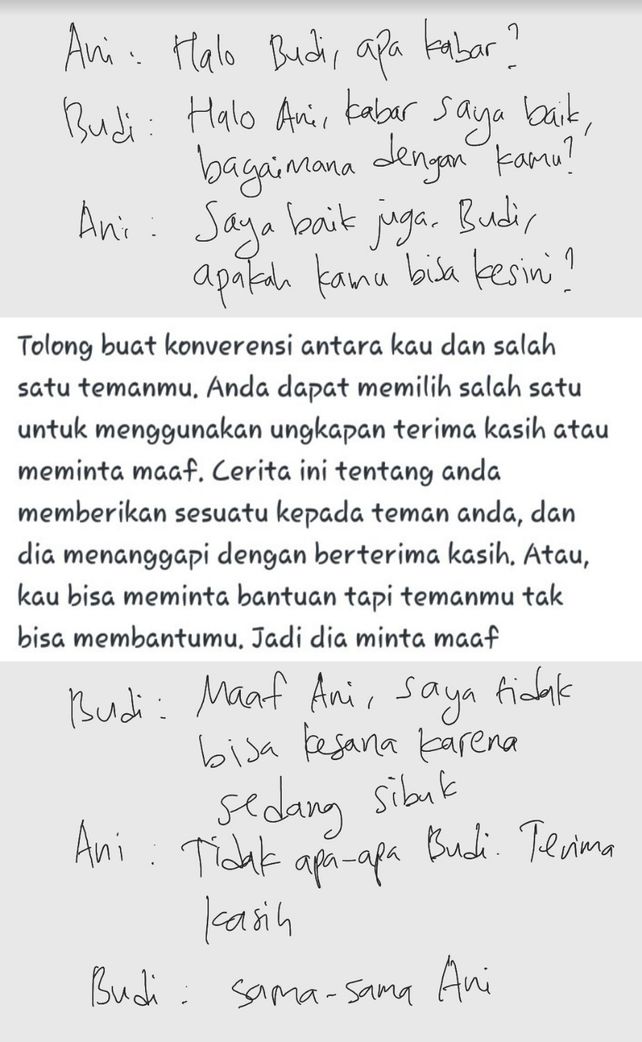 Ani : Halo Budi, apa kabar?
Budi : Halo Ani, kabar saya baik,
bagaimana dengan kamu?
Ani : Saya baik juga. Budi,
apakah kamu bisa kesini?
Tolong buat konverensi antara kau dan salah
satu temanmu. Anda dapat memilih salah satu
untuk menggunakan ungkapan terima kasih atau
meminta maaf. Cerita ini tentang anda
memberikan sesuatu kepada teman anda, dan
dia menanggapi dengan berterima kasih. Atau,
kau bisa meminta bantuan tapi temanmu tak
bisa membantumu. Jadi dia minta maaf
Budi : Maaf Ani, saya tidak
bisa kesana karena
sedang sibuk
Ani : Tidak apa-apa Budi. Terima
kasih
Budi : sama-sama Ani